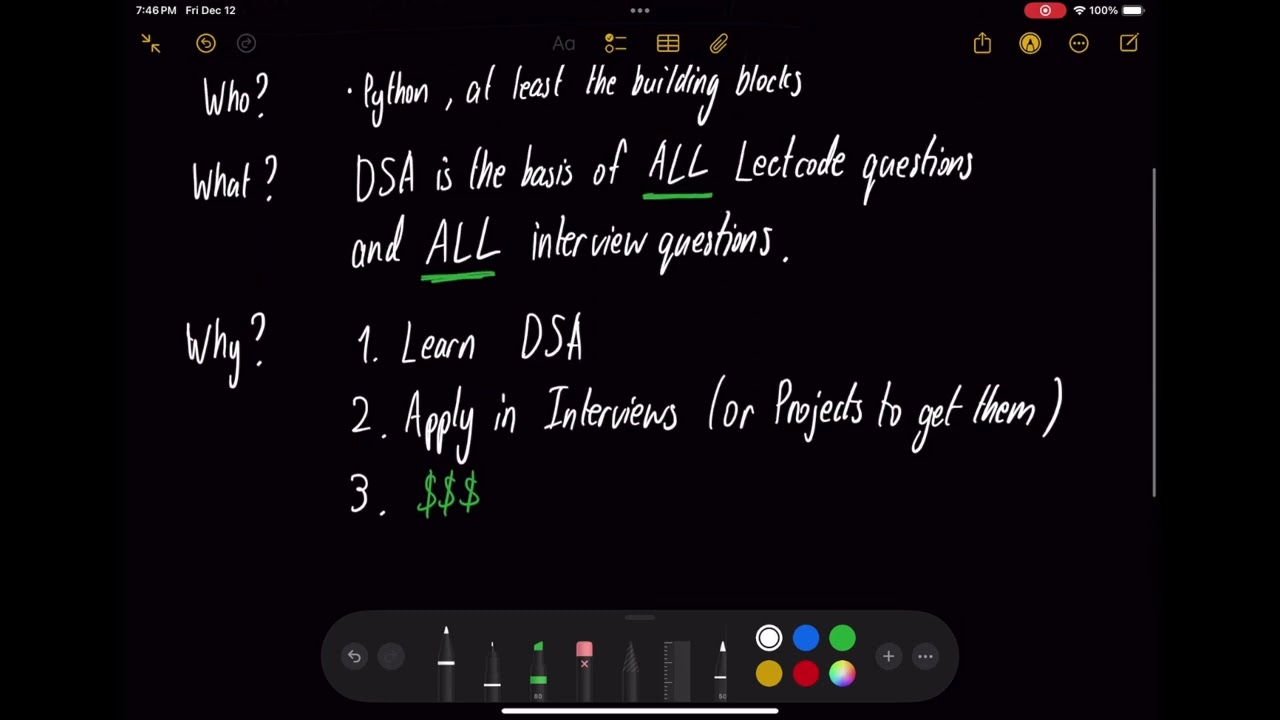 7:46 PM Fri Dec 12
100%
Aa
Who? · Python, at least the building blocks
What? DSA is the basis of ALL Leetcode questions
and ALL interview questions.
Why? 1. Learn DSA
2. Apply in Interviews (or Projects to get them)
3. $$$
80
50